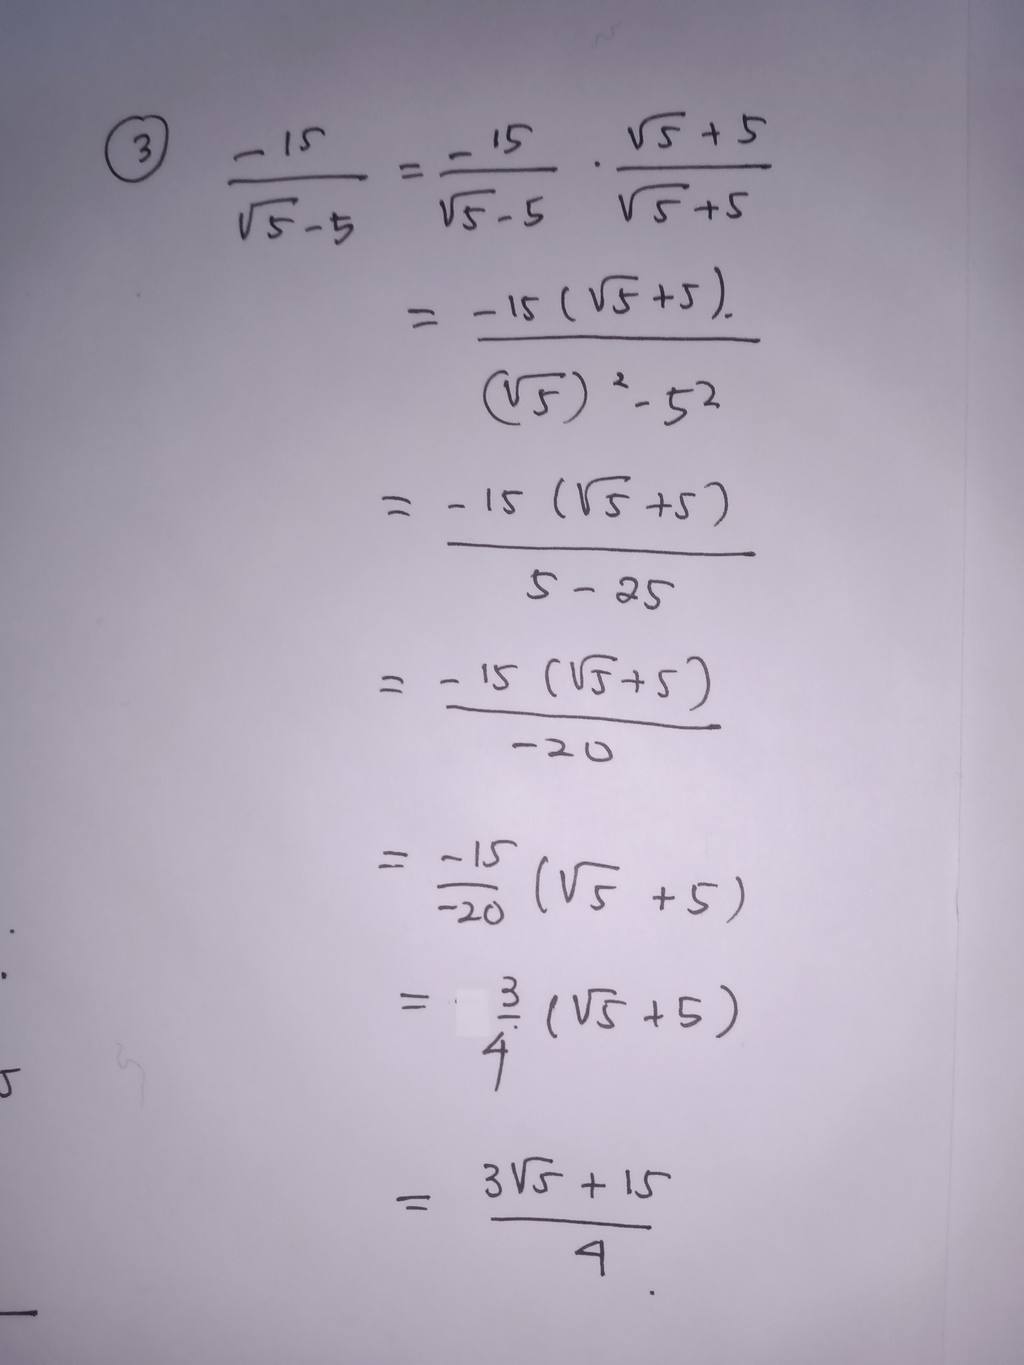 ③ -15/(√5-5) = -15/(√5-5) · (√5+5)/(√5+5)
= -15(√5+5)./((√5)²-5²)
= -15(√5+5)/(5-25)
= -15(√5+5)/(-20)
= -15/-20 (√5+5)
= 3/4 (√5+5)
= (3√5+15)/4.